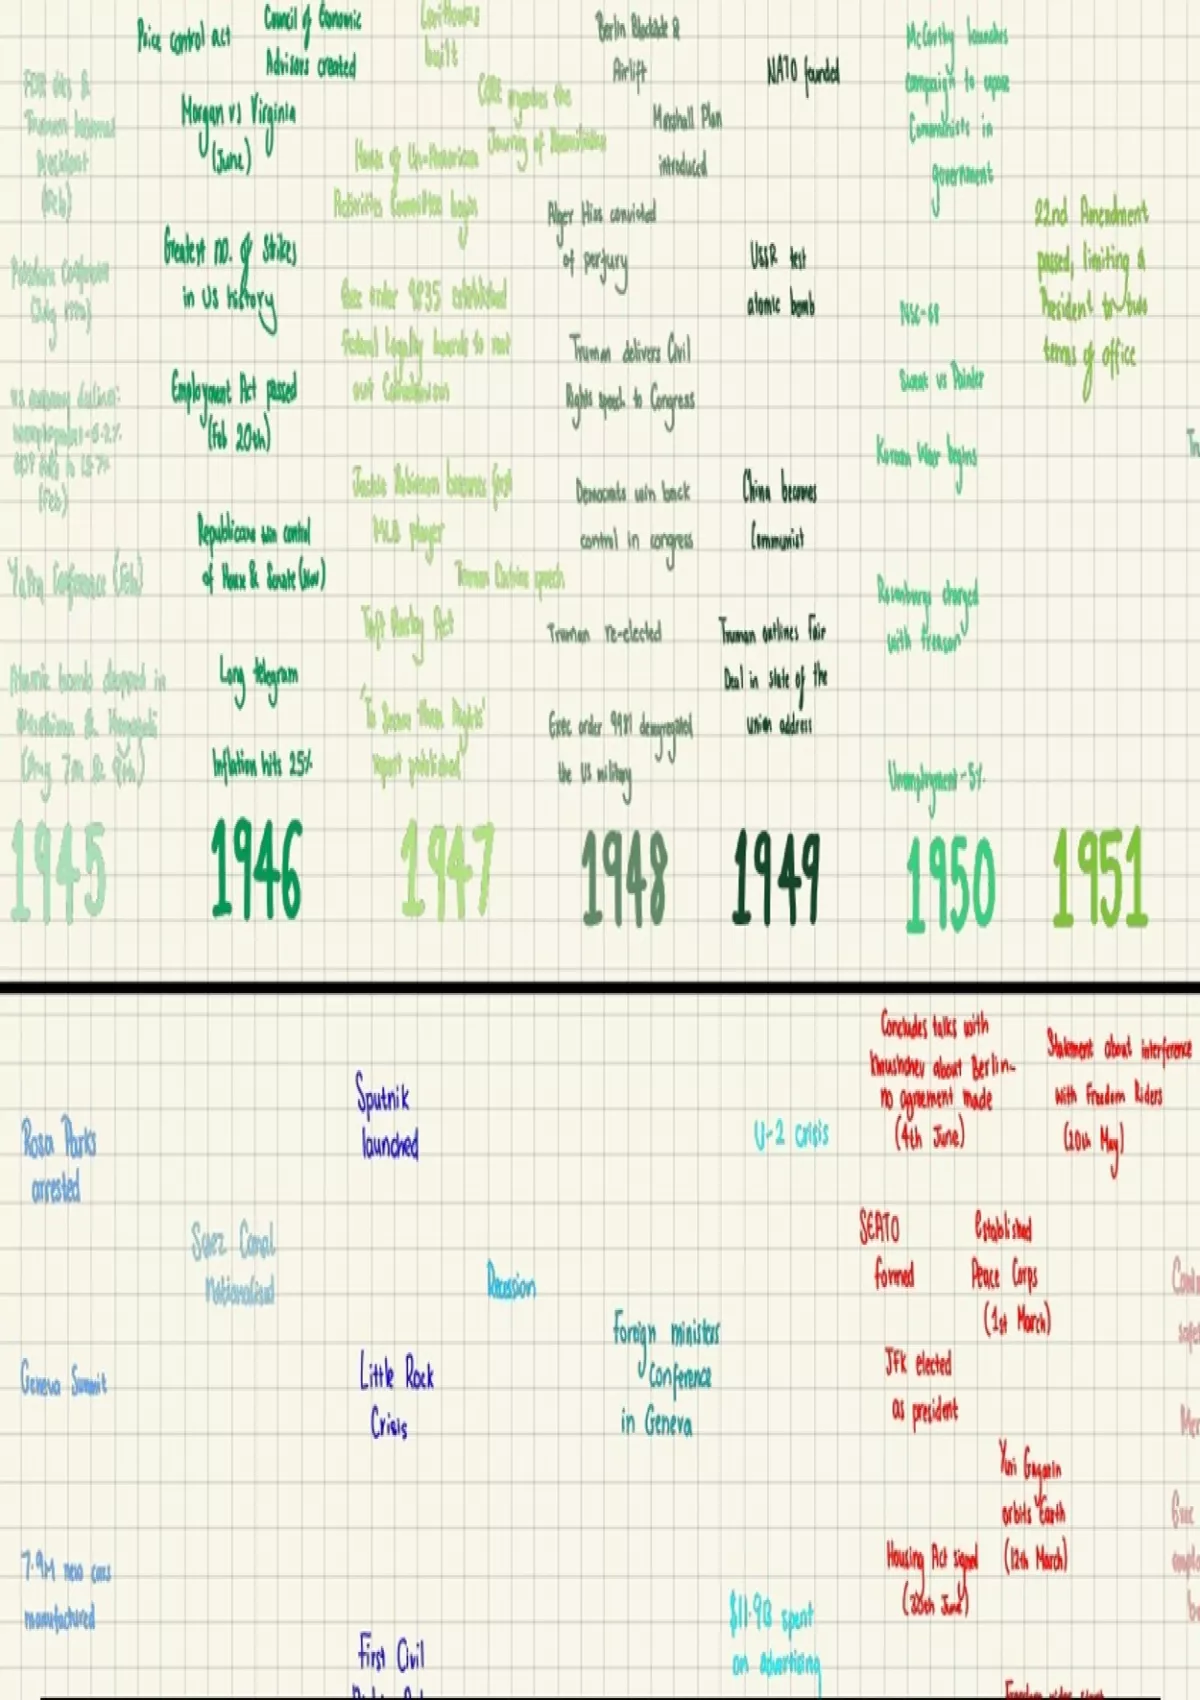 FDR dies &
Truman becomes
President
(Feb)
Potsdam Conference
US economy declines:
unemployment - 5.2%
GDP falls to 15.7%
(Feb)
Yalta Conference (Feb)
Atomic bomb dropped in
Hiroshima & Nagasaki
(Aug 7th & 9th)
1945
Price control act
Council of Economic
Advisors created
Morgan vs Virginia
(June)
Greatest no. of Strikes
in US history
Employment Act passed
(Feb 20th)
Republicans win control
of House & Senate (Nov)
Long telegram
Inflation hits 25%
1946
built
CORE organises the
Journey of Reconciliation
House of Un-American
Activities Committee begin
Exec order 9835 established
Federal Loyalty boards to root
out Communism
Jackie Robinson becomes first
MLB player
Truman Doctrine speech
Taft Hartley Act
'To Secure These Rights'
report published
1947
Berlin Blockade &
Airlift
Marshall Plan
introduced
Alger Hiss convicted
of perjury
Truman delivers Civil
Rights speech to Congress
Democrats win back
control in congress
Truman re-elected
Exec order 9981 desegregated
the US military
1948
NATO founded
USSR test
atomic bomb
China becomes
Communist
Truman outlines Fair
Deal in state of the
union address
1949
McCarthy launches
campaign to expose
Communists in
government
NSC-68
Sweat vs Painter
Korean War begins
Rosenburgs charged
with treason
Unemployment - 5%
1950
22nd Amendment
passed, limiting a
President to two
terms of office
1951
Rosa Parks
arrested
Geneva Summit
7.9M new cars
manufactured
Suez Canal
Nationalised
Sputnik
launched
Little Rock
Crisis
First Civil
Recession
Foreign ministers
Conference
in Geneva
U-2 crisis
$11.9B spent
on advertising
Concludes talks with
Khrushchev about Berlin-
no agreement made
(4th June)
Statement about interference
with Freedom Riders
(20th May)
SEATO
formed
Established
Peace Corps
(1st March)
JFK elected
as president
Yuri Gagarin
orbits Earth
(12th March)
Housing Act signed
(30th June)